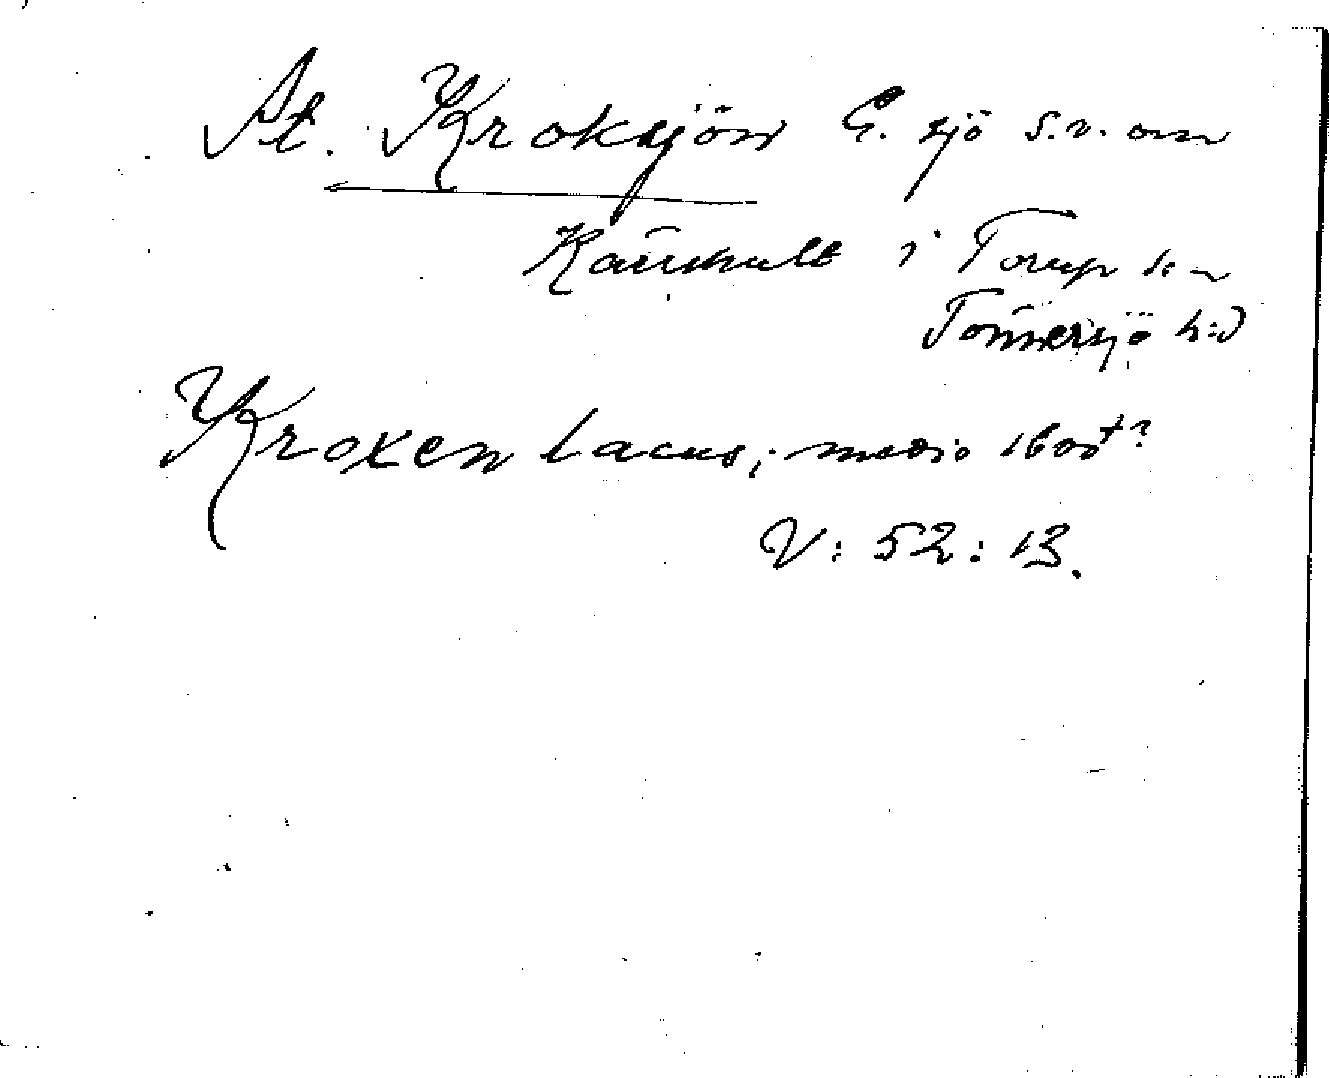 St. Kroksjön E. sjö s.v. om
i Torup sn
Tönnersjö h:d
Kroxen lacus, medio 1600t?
V: 52: 13.